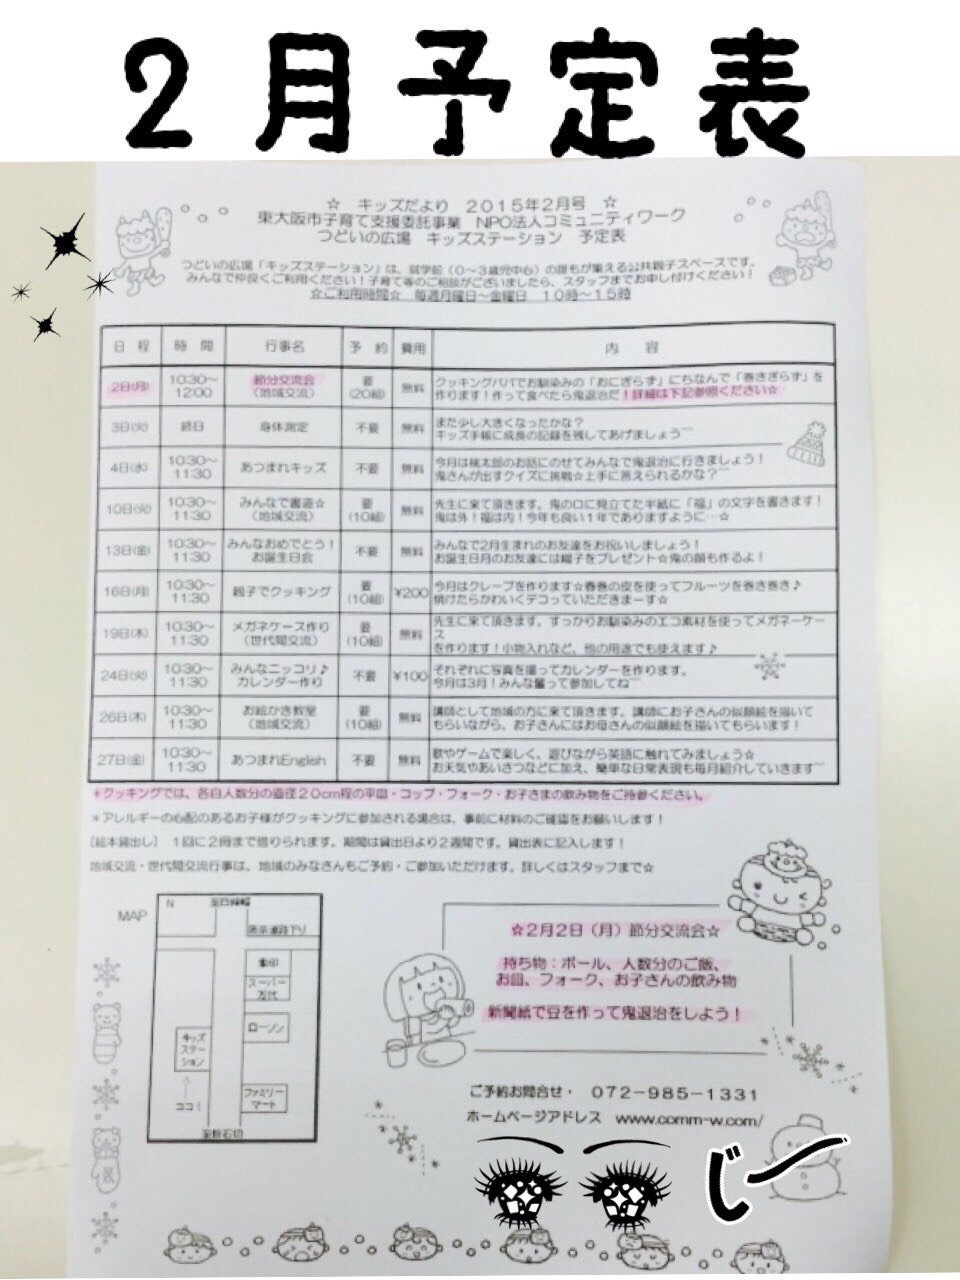 2月予定表
☆ キッズだより 2015年2月号 ☆
東大阪市子育て支援委託事業 NPO法人コミュニティワーク
つどいの広場 キッズステーション 予定表
つどいの広場「キッズステーション」は、就学前(0〜3歳児中心)の誰もが集える公共親子スペースです。
みんなで仲良くご利用ください!子育て等のご相談がございましたら、スタッフまでお申し付けください!
☆ご利用時間☆ 毎週月曜日〜金曜日 10時〜15時
日程 時間 行事名 予約 費用 内容
2日(月) 10:30〜12:00 節分交流会(地域交流) 要(20組) 無料 クッキングパパでお馴染みの「おにぎらず」にちなんで「巻きぎらず」を
作ります!作って食べたら鬼退治だ!詳細は下記参照ください☆
3日(火) 終日 身体測定 不要 無料 また少し大きくなったかな?
キッズ手帳に成長の記録を残してあげましょう〜
4日(水) 10:30〜11:30 あつまれキッズ 不要 無料 今月は桃太郎のお話にのせてみんなで鬼退治に行きましょう!
鬼さんが出すクイズに挑戦☆上手に答えられるかな?〜
10日(火) 10:30〜11:30 みんなで書道☆(地域交流) 要(10組) 無料 先生に来て頂きます。鬼の口に見立てた半紙に「福」の文字を書きます!
鬼は外!福は内!今年も良い1年でありますように…☆
13日(金) 10:30〜11:30 みんなおめでとう!お誕生日会 不要 無料 みんなで2月生まれのお友達をお祝いしましょう!
お誕生日月のお友達には帽子をプレゼント☆鬼の顔も作るよ!
16日(月) 10:30〜11:30 親子でクッキング 要(10組) ¥200 今月はクレープを作ります☆春巻の皮を使ってフルーツを巻き巻き♪
焼けたらかわいくデコっていただきまーす☆
19日(木) 10:30〜11:30 メガネケース作り(世代間交流) 要(10組) 無料 先生に来て頂きます。すっかりお馴染みのエコ素材を使ってメガネーケー
ス
を作ります!小物入れなど、他の用途でも使えます♪
24日(火) 10:30〜11:30 みんなニッコリ♪カレンダー作り 不要 ¥100 それぞれに写真を撮ってカレンダーを作ります。
今月は3月!みんな奮って参加してね〜
26日(木) 10:30〜11:30 お絵かき教室(地域交流) 要(10組) 無料 講師として地域の方に来て頂きます。講師にお子さんの似顔絵を描いて
もらいながら、お子さんにはお母さんの似顔絵を描いてもらいます!
27日(金) 10:30〜11:30 あつまれEnglish 不要 無料 歌やゲームで楽しく、遊びながら英語に触れてみましょう☆
お天気やあいさつなどに加え、簡単な日常表現も毎月紹介していきます〜
*クッキングでは、各自人数分の直径20cm程の平皿・コップ・フォーク・お子さまの飲み物をご持参ください。
*アレルギーの心配のあるお子様がクッキングに参加される場合は、事前に材料のご確認をお願いします!
[絵本貸出し] 1回に2冊まで借りられます。期間は貸出日より2週間です。貸出表に記入します!
地域交流・世代間交流行事は、地域のみなさんもご予約・ご参加いただけます。詳しくはスタッフまで☆
MAP
N
至四條畷
スーパー
万代
ローソン
キッズ
ステー
ション
↑
ココ!
ファミリー
マート
至新石切
☆2月2日(月)節分交流会☆
持ち物:ボール、人数分のご飯、
お皿、フォーク、お子さんの飲み物
新聞紙で豆を作って鬼退治をしよう!
ご予約お問合せ・ 072-985-1331
ホームページアドレス www.comm-w.com/
じー